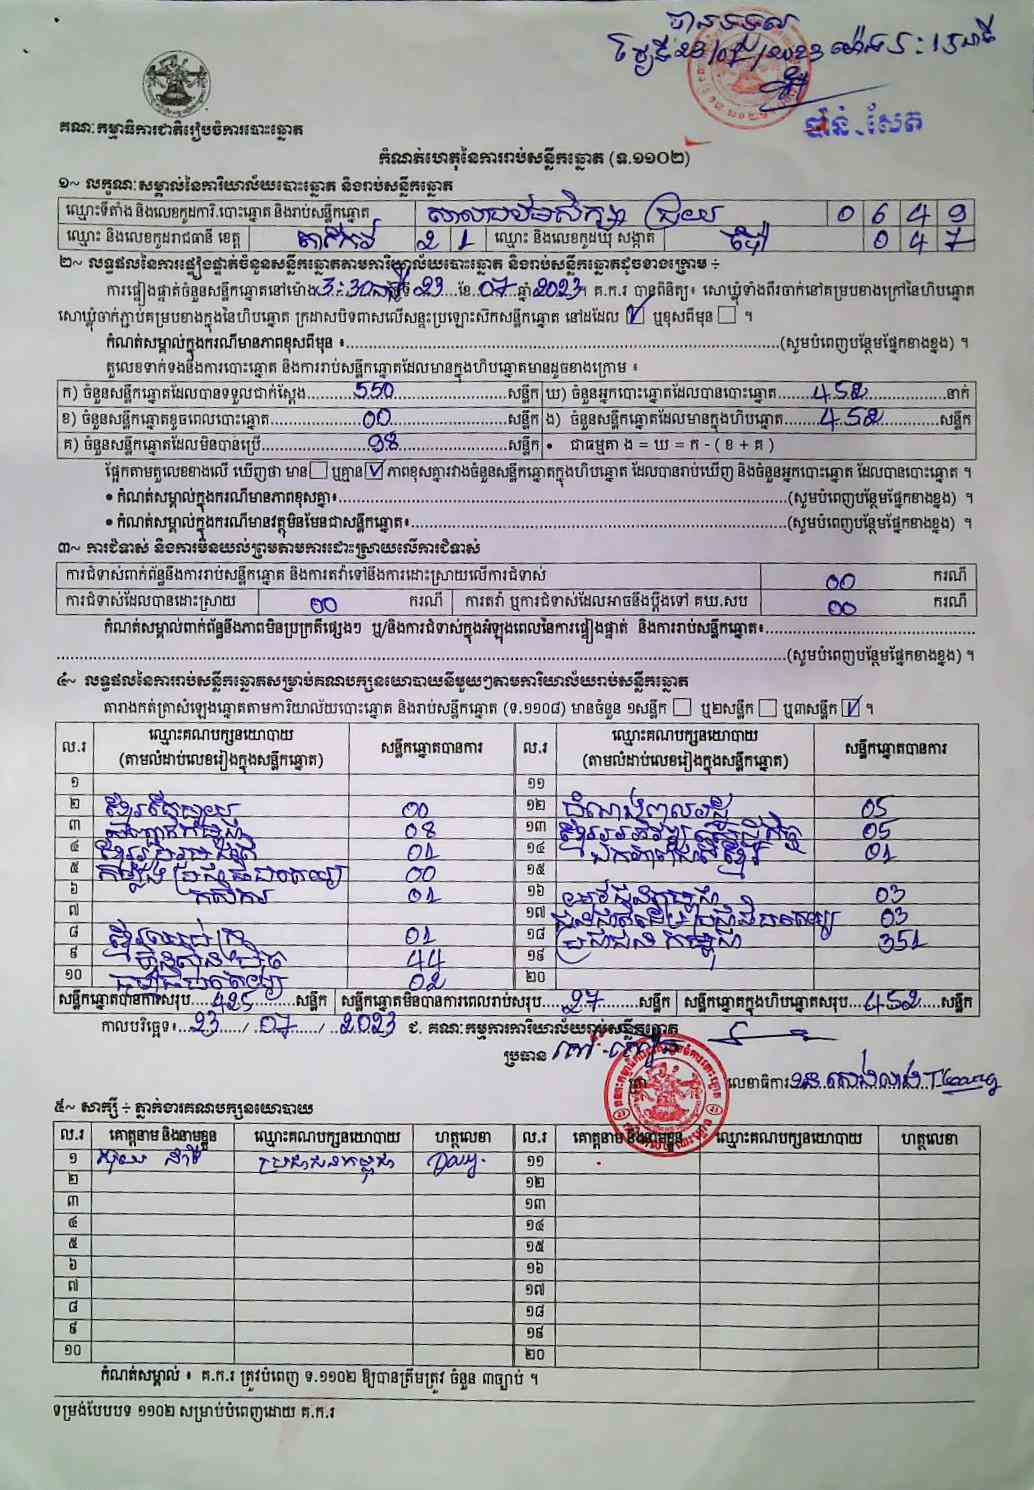 បានទទួល
ថ្ងៃទី 23/07/2023 ម៉ោង
គណៈកម្មាធិការជាតិរៀបចំការបោះឆ្នោត
កំណត់ហេតុនៃការរាប់សន្លឹកឆ្នោត (ទ.១១០២)
១~ លក្ខណៈសម្គាល់នៃការិយាល័យបោះឆ្នោត និងរាប់សន្លឹកឆ្នោត
ឈ្មោះទីតាំង និងលេខកូដការិ.បោះឆ្នោត និងរាប់សន្លឹកឆ្នោត 0 6 4 9
ឈ្មោះ និងលេខកូដរាជធានី ខេត្ត តាកែវ 2 1 ឈ្មោះ និងលេខកូដឃុំ សង្កាត់ 0 4 7
២~ លទ្ធផលនៃការផ្ទៀងផ្ទាត់ចំនួនសន្លឹកឆ្នោតតាមការិយាល័យបោះឆ្នោត និងរាប់សន្លឹកឆ្នោតដូចខាងក្រោម ÷
ការផ្ទៀងផ្ទាត់ចំនួនសន្លឹកឆ្នោតនៅម៉ោង 3:30 ថ្ងៃទី 23 ខែ 07 ឆ្នាំ 2023 ។ គ.ក.រ បានពិនិត្យ៖ សោឃ្លុំទាំងពីរចាក់នៅគម្របខាងក្រៅនៃហិបឆ្នោត
សោឃ្លុំចាក់ភ្ជាប់គម្របខាងក្នុងនៃហិបឆ្នោត ក្រដាសបិទពាសលើសន្ទះប្រឡោះសិកសន្លឹកឆ្នោត នៅដដែល ☑ ឬខុសពីមុន ☐ ។
កំណត់សម្គាល់ក្នុងករណីមានភាពខុសពីមុន ៖ (សូមបំពេញបន្ថែមផ្នែកខាងខ្នង) ។
តួលេខទាក់ទងនឹងការបោះឆ្នោត និងការរាប់សន្លឹកឆ្នោតដែលមានក្នុងហិបឆ្នោតមានដូចខាងក្រោម ៖
ក) ចំនួនសន្លឹកឆ្នោតដែលបានទទួលជាក់ស្តែង 550 សន្លឹក ឃ) ចំនួនអ្នកបោះឆ្នោតដែលបានបោះឆ្នោត 452 នាក់
ខ) ចំនួនសន្លឹកឆ្នោតខូចពេលបោះឆ្នោត 00 សន្លឹក ង) ចំនួនសន្លឹកឆ្នោតដែលមានក្នុងហិបឆ្នោត 452 សន្លឹក
គ) ចំនួនសន្លឹកឆ្នោតដែលមិនបានប្រើ 98 សន្លឹក • ជាធម្មតា ង = ឃ = ក - ( ខ + គ )
ផ្អែកតាមតួលេខខាងលើ ឃើញថា មាន ☐ ឬគ្មាន ☑ ភាពខុសគ្នារវាងចំនួនសន្លឹកឆ្នោតក្នុងហិបឆ្នោត ដែលបានរាប់ឃើញ និងចំនួនអ្នកបោះឆ្នោត ដែលបានបោះឆ្នោត ។
• កំណត់សម្គាល់ក្នុងករណីមានភាពខុសគ្នា៖ (សូមបំពេញបន្ថែមផ្នែកខាងខ្នង) ។
• កំណត់សម្គាល់ក្នុងករណីមានវត្ថុមិនមែនជាសន្លឹកឆ្នោត៖ (សូមបំពេញបន្ថែមផ្នែកខាងខ្នង) ។
៣~ ការជំទាស់ និងការមិនយល់ព្រមតាមការដោះស្រាយលើការជំទាស់
ការជំទាស់ពាក់ព័ន្ធនឹងការរាប់សន្លឹកឆ្នោត និងការតវ៉ាទៅនឹងការដោះស្រាយលើការជំទាស់ 00 ករណី
ការជំទាស់ដែលបានដោះស្រាយ 00 ករណី ការតវ៉ា ឬការជំទាស់ដែលអាចនឹងប្តឹងទៅ គឃ.សប 00 ករណី
កំណត់សម្គាល់ពាក់ព័ន្ធនឹងភាពមិនប្រក្រតីផ្សេងៗ ឬ/និងការជំទាស់ក្នុងអំឡុងពេលនៃការផ្ទៀងផ្ទាត់ និងការរាប់សន្លឹកឆ្នោត៖
(សូមបំពេញបន្ថែមផ្នែកខាងខ្នង) ។
៤~ លទ្ធផលនៃការរាប់សន្លឹកឆ្នោតសម្រាប់គណបក្សនយោបាយនីមួយៗតាមការិយាល័យរាប់សន្លឹកឆ្នោត
តារាងកត់ត្រាសំឡេងឆ្នោតតាមការិយាល័យបោះឆ្នោត និងរាប់សន្លឹកឆ្នោត (ទ.១១០៨) មានចំនួន ១សន្លឹក ☐ ឬ២សន្លឹក ☐ ឬ៣សន្លឹក ☑ ។
ល.រ ឈ្មោះគណបក្សនយោបាយ (តាមលំដាប់លេខរៀងក្នុងសន្លឹកឆ្នោត) សន្លឹកឆ្នោតបានការ ល.រ ឈ្មោះគណបក្សនយោបាយ (តាមលំដាប់លេខរៀងក្នុងសន្លឹកឆ្នោត) សន្លឹកឆ្នោតបានការ
១ ១១
២ 00 ១២ 05
៣ 08 ១៣ 05
៤ 01 ១៤ 01
៥ 00 ១៥
៦ កសិករ 01 ១៦ 03
៧ ១៧ 03
៨ 01 ១៨ ប្រជាជនកម្ពុជា 351
៩ ហ៊្វុនស៊ិនប៉ិច 44 ១៩
១០ 02 ២០
សន្លឹកឆ្នោតបានការសរុប 425 សន្លឹក សន្លឹកឆ្នោតមិនបានការពេលរាប់សរុប 27 សន្លឹក សន្លឹកឆ្នោតក្នុងហិបឆ្នោតសរុប 452 សន្លឹក
កាលបរិច្ឆេទ៖ 23 / 07 / 2023 ជ. គណៈកម្មការការិយាល័យរាប់សន្លឹកឆ្នោត
ប្រធាន
លេខាធិការ
៥~ សាក្សី ÷ ភ្នាក់ងារគណបក្សនយោបាយ
ល.រ គោត្តនាម និងនាមខ្លួន ឈ្មោះគណបក្សនយោបាយ ហត្ថលេខា ល.រ គោត្តនាម និងនាមខ្លួន ឈ្មោះគណបក្សនយោបាយ ហត្ថលេខា
១ ប្រជាជនកម្ពុជា ១១
២ ១២
៣ ១៣
៤ ១៤
៥ ១៥
៦ ១៦
៧ ១៧
៨ ១៨
៩ ១៩
១០ ២០
កំណត់សម្គាល់ ៖ គ.ក.រ ត្រូវបំពេញ ទ.១១០២ ឱ្យបានត្រឹមត្រូវ ចំនួន ៣ច្បាប់ ។
ទម្រង់បែបបទ ១១០២ សម្រាប់បំពេញដោយ គ.ក.រ